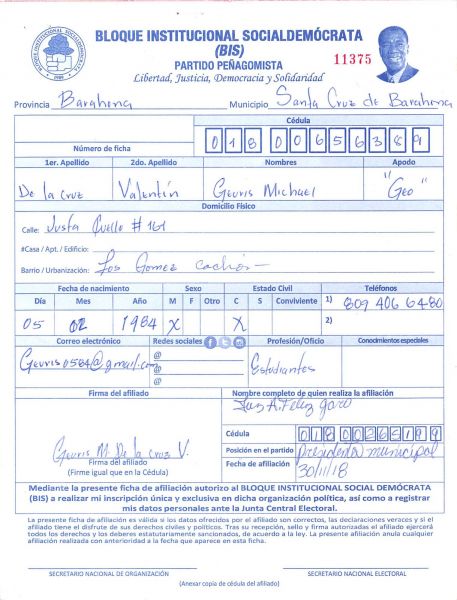 BLOQUE INSTITUCIONAL SOCIALDEMÓCRATA
(BIS)
PARTIDO PEÑAGOMISTA
11375
Libertad, Justicia, Democracia y Solidaridad
Provincia Barahona Municipio Santa Cruz de Barahona
Cédula
Número de ficha 018 0065638 9
1er. Apellido 2do. Apellido Nombres Apodo
De la Cruz Valentín Geuris Michael "Geo"
Domicilio Físico
Calle: Justa Cuello # 161
#Casa / Apt. / Edificio:
Barrio / Urbanización: Los Gomez Cachón
Fecha de nacimiento Sexo Estado Civil Teléfonos
Día Mes Año M F Otro C S Conviviente 1) 809 406 6480
05 02 1984 X X 2)
Correo electrónico Redes sociales Profesión/Oficio Conocimientos especiales
Geuris0584@gmail.com @ Estudiantes
@
@
Firma del afiliado Nombre completo de quien realiza la afiliación
A. Feliz
Cédula
Geuris M. De la Cruz V. Posición en el partido Presidente municipal
Firma del afiliado Fecha de afiliación 30/11/18
(Firme igual que en la Cédula)
Mediante la presente ficha de afiliación autorizo al BLOQUE INSTITUCIONAL SOCIAL DEMÓCRATA
(BIS) a realizar mi inscripción única y exclusiva en dicha organización política, así como a registrar
mis datos personales ante la Junta Central Electoral.
La presente ficha de afiliación es válida si los datos ofrecidos por el afiliado son correctos, las declaraciones veraces y si el
afiliado tiene el disfrute de sus derechos civiles y políticos. Tras su recepción, sello y firma autorizadas el afiliado ejercerá
todos los derechos y los deberes estatutariamente sancionados, de acuerdo a la ley. La presente afiliación anula cualquier
afiliación realizada con anterioridad a la fecha que aparece en esta ficha.
SECRETARIO NACIONAL DE ORGANIZACIÓN SECRETARIO NACIONAL ELECTORAL
(Anexar copia de cédula del afiliado)